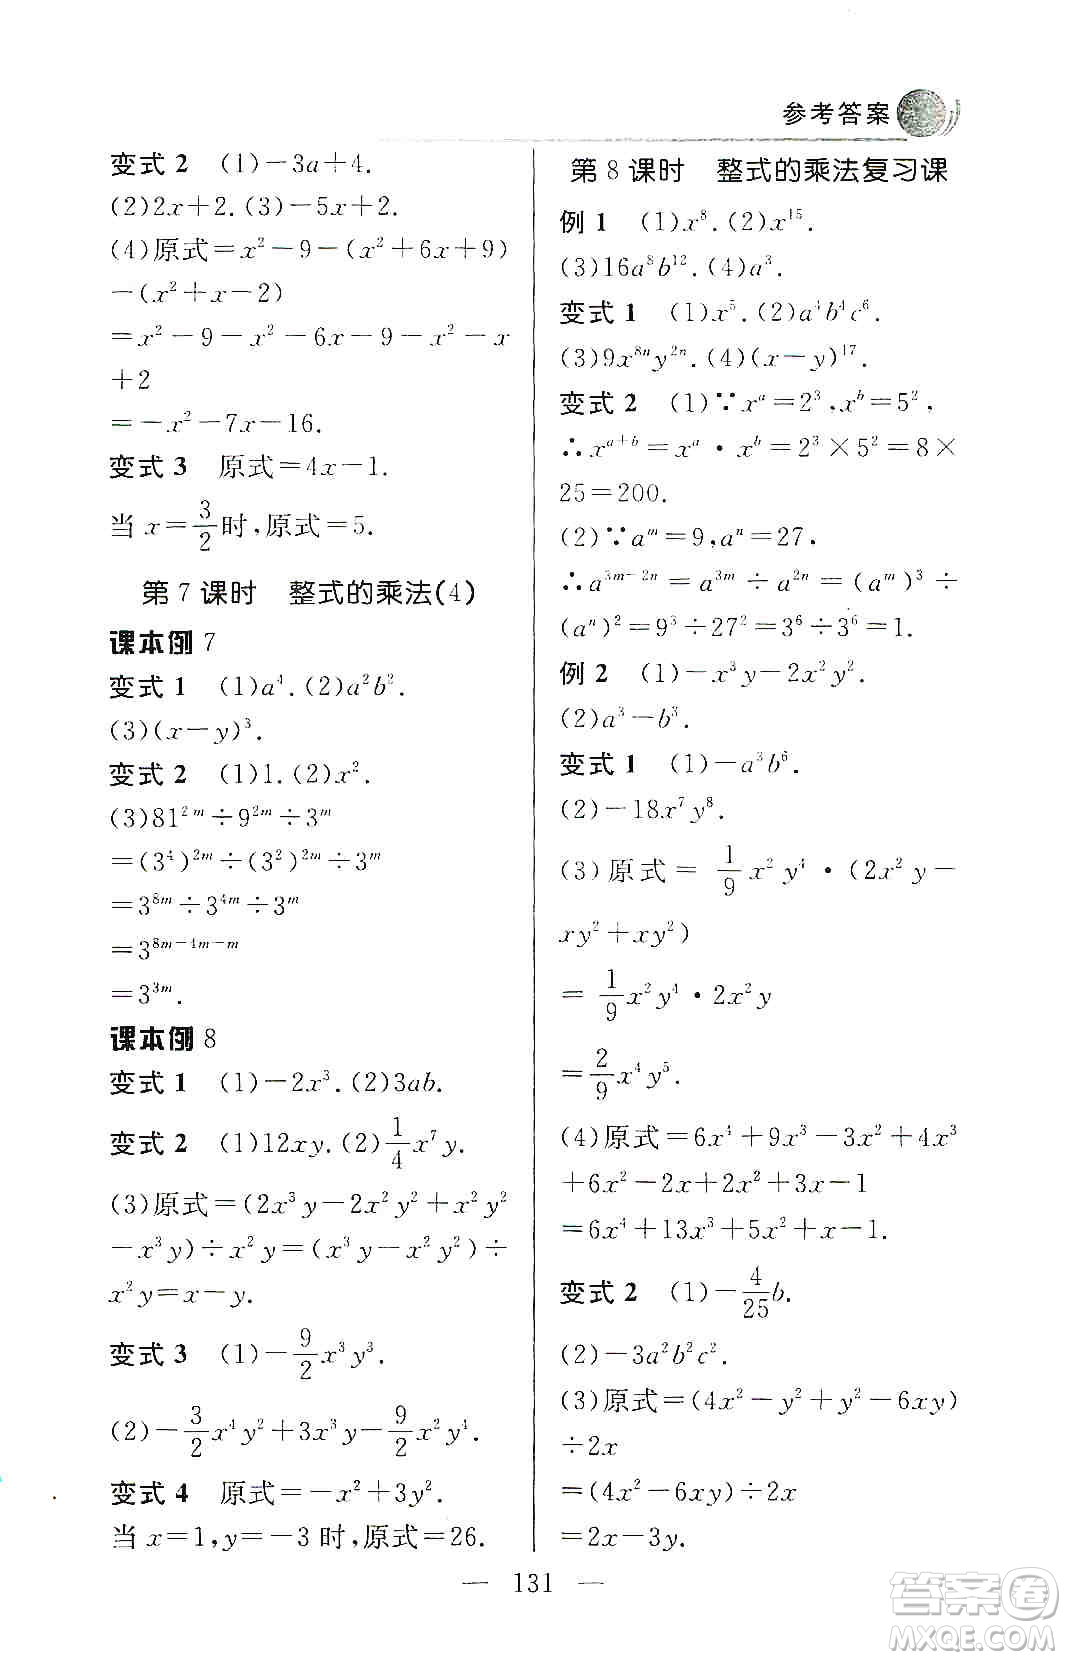 参考答案
变式 2　(1)－3a＋4.
(2)2x＋2.(3)－5x＋2.
(4)原式＝x²－9－(x²＋6x＋9)
－(x²＋x－2)
＝x²－9－x²－6x－9－x²－x
＋2
＝－x²－7x－16.
变式 3　原式＝4x－1.
当 x＝3/2时,原式＝5.
第 7 课时　整式的乘法(4)
课本例 7
变式 1　(1)a⁴.(2)a²b².
(3)(x－y)³.
变式 2　(1)1.(2)x².
(3)81²ᵐ÷9²ᵐ÷3ᵐ
＝(3⁴)²ᵐ÷(3²)²ᵐ÷3ᵐ
＝3⁸ᵐ÷3⁴ᵐ÷3ᵐ
＝3⁸ᵐ⁻⁴ᵐ⁻ᵐ
＝3³ᵐ.
课本例 8
变式 1　(1)－2x³.(2)3ab.
变式 2　(1)12xy.(2)1/4x⁷y.
(3)原式＝(2x³y－2x²y²＋x²y²
－x³y)÷x²y＝(x³y－x²y²)÷
x²y＝x－y.
变式 3　(1)－9/2x³y³.
(2)－3/2x⁴y²＋3x³y－9/2x²y⁴.
变式 4　原式＝－x²＋3y².
当 x＝1,y＝－3 时,原式＝26.
第 8 课时　整式的乘法复习课
例 1　(1)x⁸.(2)x¹⁵.
(3)16a⁸b¹².(4)a³.
变式 1　(1)x⁵.(2)a⁴b⁴c⁶.
(3)9x⁸ⁿy²ⁿ.(4)(x－y)¹⁷.
变式 2　(1)∵xᵃ＝2³,xᵇ＝5²,
∴xᵃ⁺ᵇ＝xᵃ·xᵇ＝2³×5²＝8×
25＝200.
(2)∵aᵐ＝9,aⁿ＝27,
∴a³ᵐ⁻²ⁿ＝a³ᵐ÷a²ⁿ＝(aᵐ)³÷
(aⁿ)²＝9³÷27²＝3⁶÷3⁶＝1.
例 2　(1)－x³y－2x²y².
(2)a³－b³.
变式 1　(1)－a³b⁶.
(2)－18x⁷y⁸.
(3)原式＝1/9x²y⁴·(2x²y－
xy²＋xy²)
＝1/9x²y⁴·2x²y
＝2/9x⁴y⁵.
(4)原式＝6x⁴＋9x³－3x²＋4x³
＋6x²－2x＋2x²＋3x－1
＝6x⁴＋13x³＋5x²＋x－1.
变式 2　(1)－4/25b.
(2)－3a²b²c².
(3)原式＝(4x²－y²＋y²－6xy)
÷2x
＝(4x²－6xy)÷2x
＝2x－3y.
— 131 —
答案卷
WWW.MXQE.COM